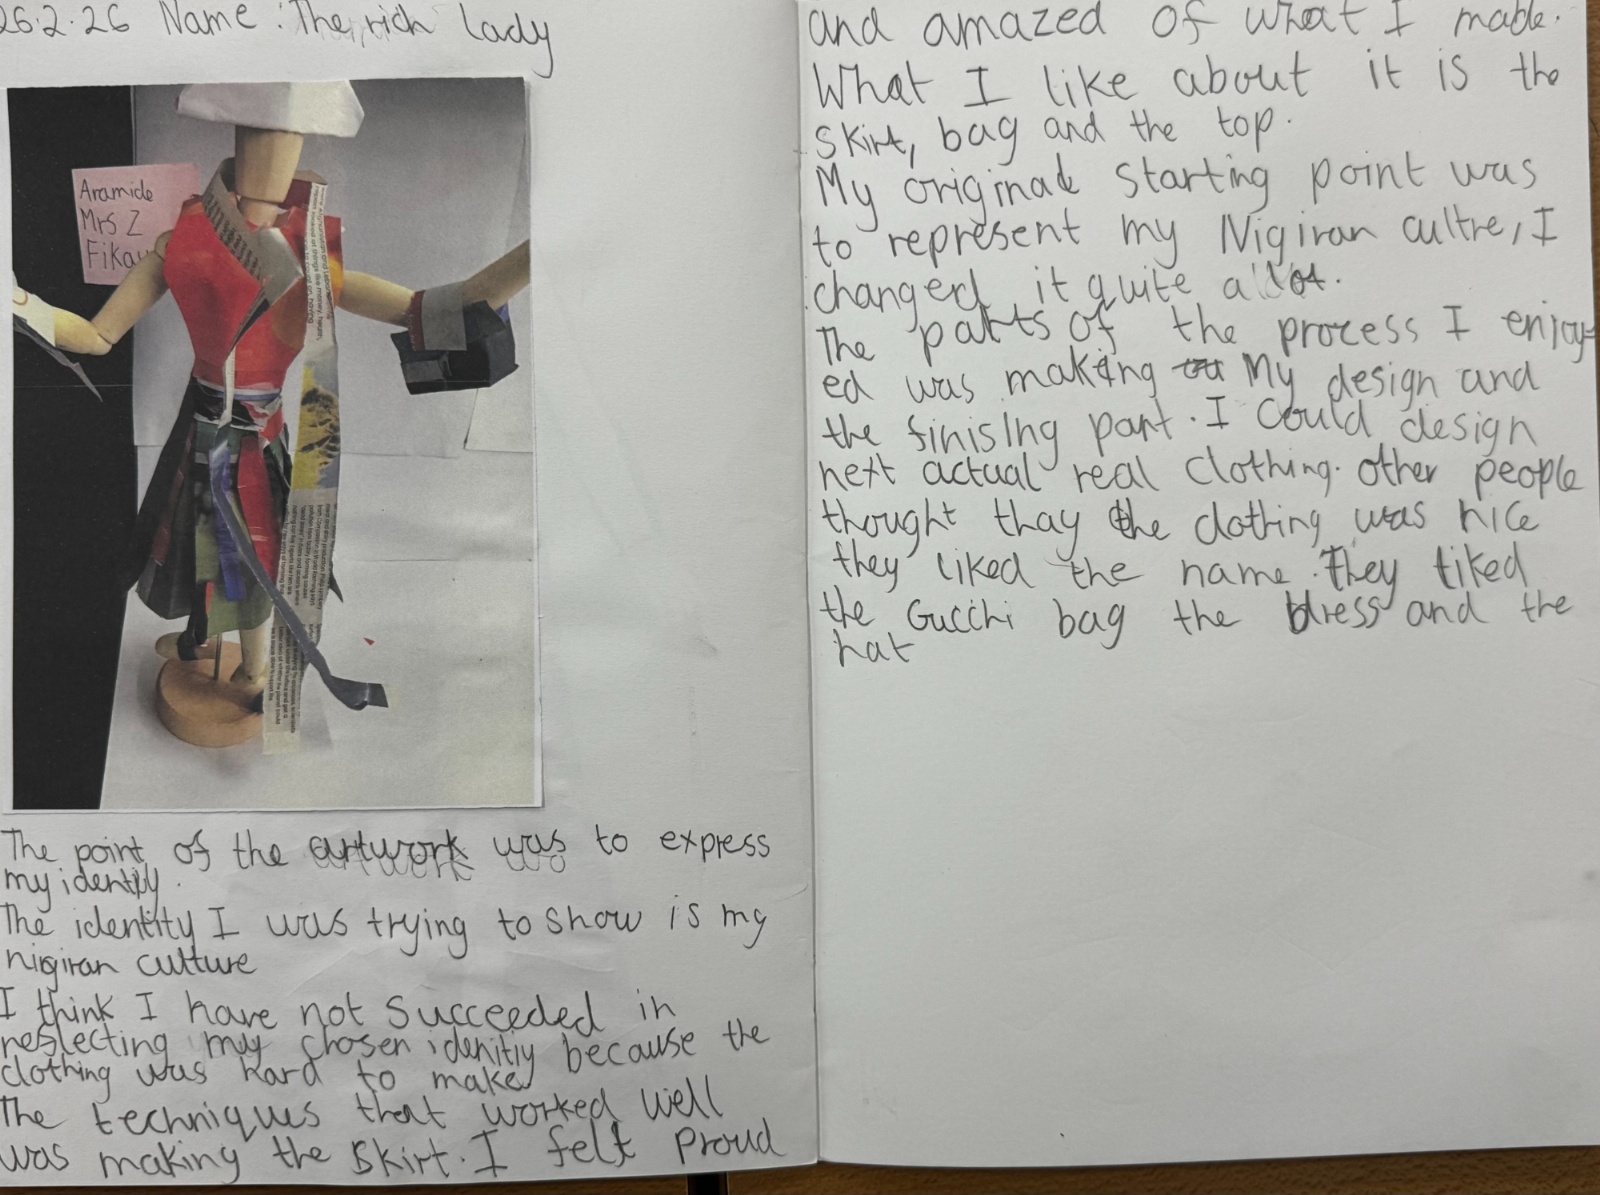 26.2.26 Name: The rich lady
Aramide
Mrs Z
Fikay
The point of the artwork was to express
my identity.
The identity I was trying to show is my
nigiran culture
I think I have not succeeded in
reslecting my chosen idenitiy because the
clothing was hard to make
The techniques that worked well
was making the skirt. I felt proud
and amazed of what I made.
What I like about it is the
skirt, bag and the top.
My original starting point was
to represent my Nigiran cultre, I
changed it quite a lot.
The parts of the process I enjoy-
ed was making My design and
the finising part. I could design
next actual real clothing. other people
thought thay the clothing was nice
they liked the name. They liked
the Gucchi bag the dress and the
hat